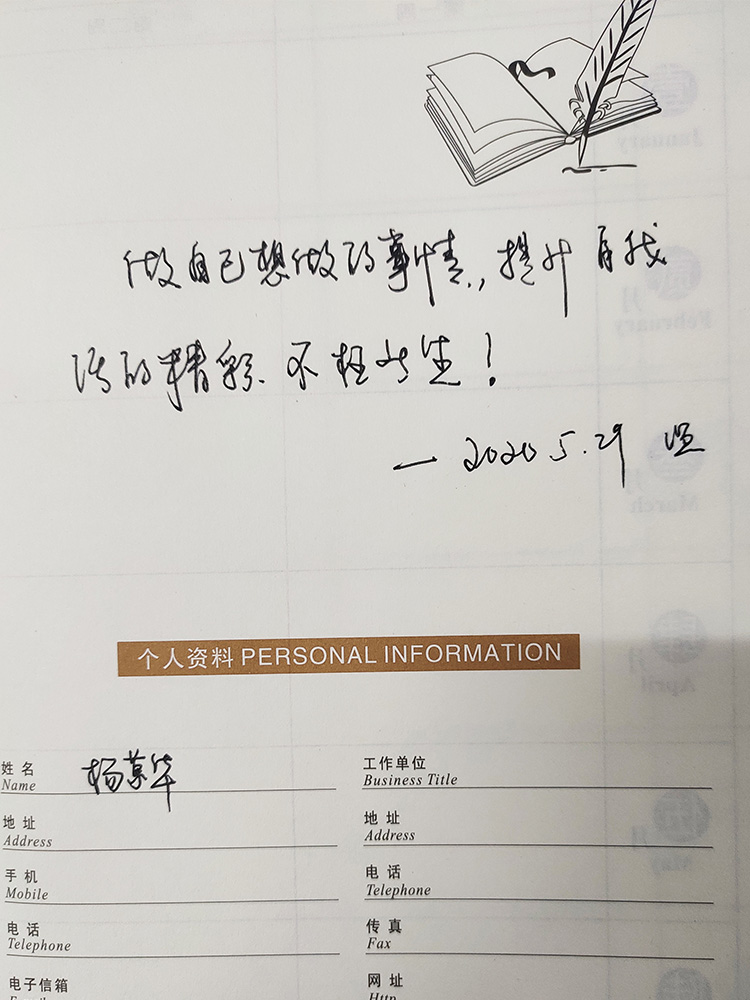 做自己想做的事情,提升自我
活的精彩.不枉此生!
—2020.5.29
个人资料 PERSONAL INFORMATION
姓名 杨景华
Name
工作单位
Business Title
地址
Address
地址
Address
手机
Mobile
电话
Telephone
电话
Telephone
传真
Fax
电子信箱
网址
Http